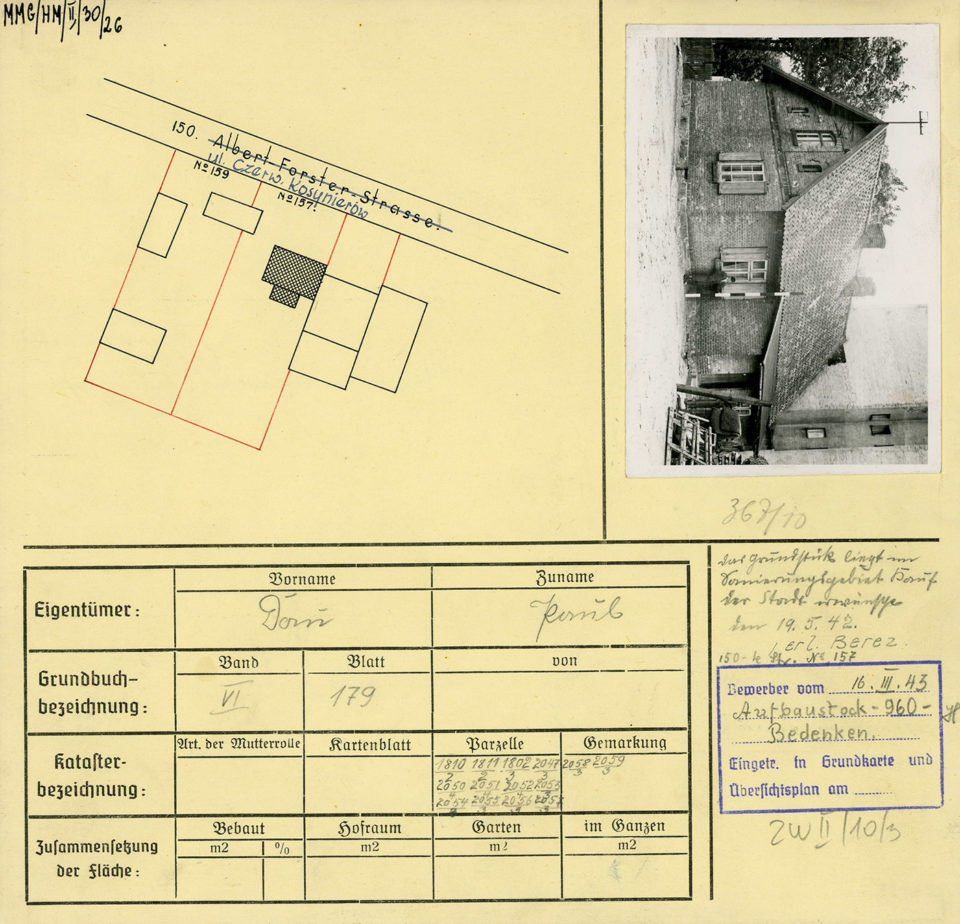 MMG/HM/II/30/26
150. Albert-Forster-Strasse.
ul. Czerw. Kosynierów
No 159
No 157.
367/10
das Grundstück liegt im
Sanierungsgebiet Kauf
der Stadt erwünscht
den 19. 5. 42.
Berez.
150-te Str. No 157
Vorname Zuname
Eigentümer:
Grundbuch-
bezeichnung:
Band Blatt von
VI 179
Kataster-
bezeichnung:
Art. der Mutterrolle Kartenblatt Parzelle Gemarkung
1810 1811 1802 2047 2058 2059
2050 2051 2052 2053
2054 2055 2056
Zusammensetzung
der Fläche:
Bebaut Hofraum Garten im Ganzen
m2 % m2 m2 m2
Bewerber vom 16. III. 43
Aufbaustock-960-
Bedenken.
Eingetr. in Grundkarte und
Übersichtsplan am
ZW II/10/3